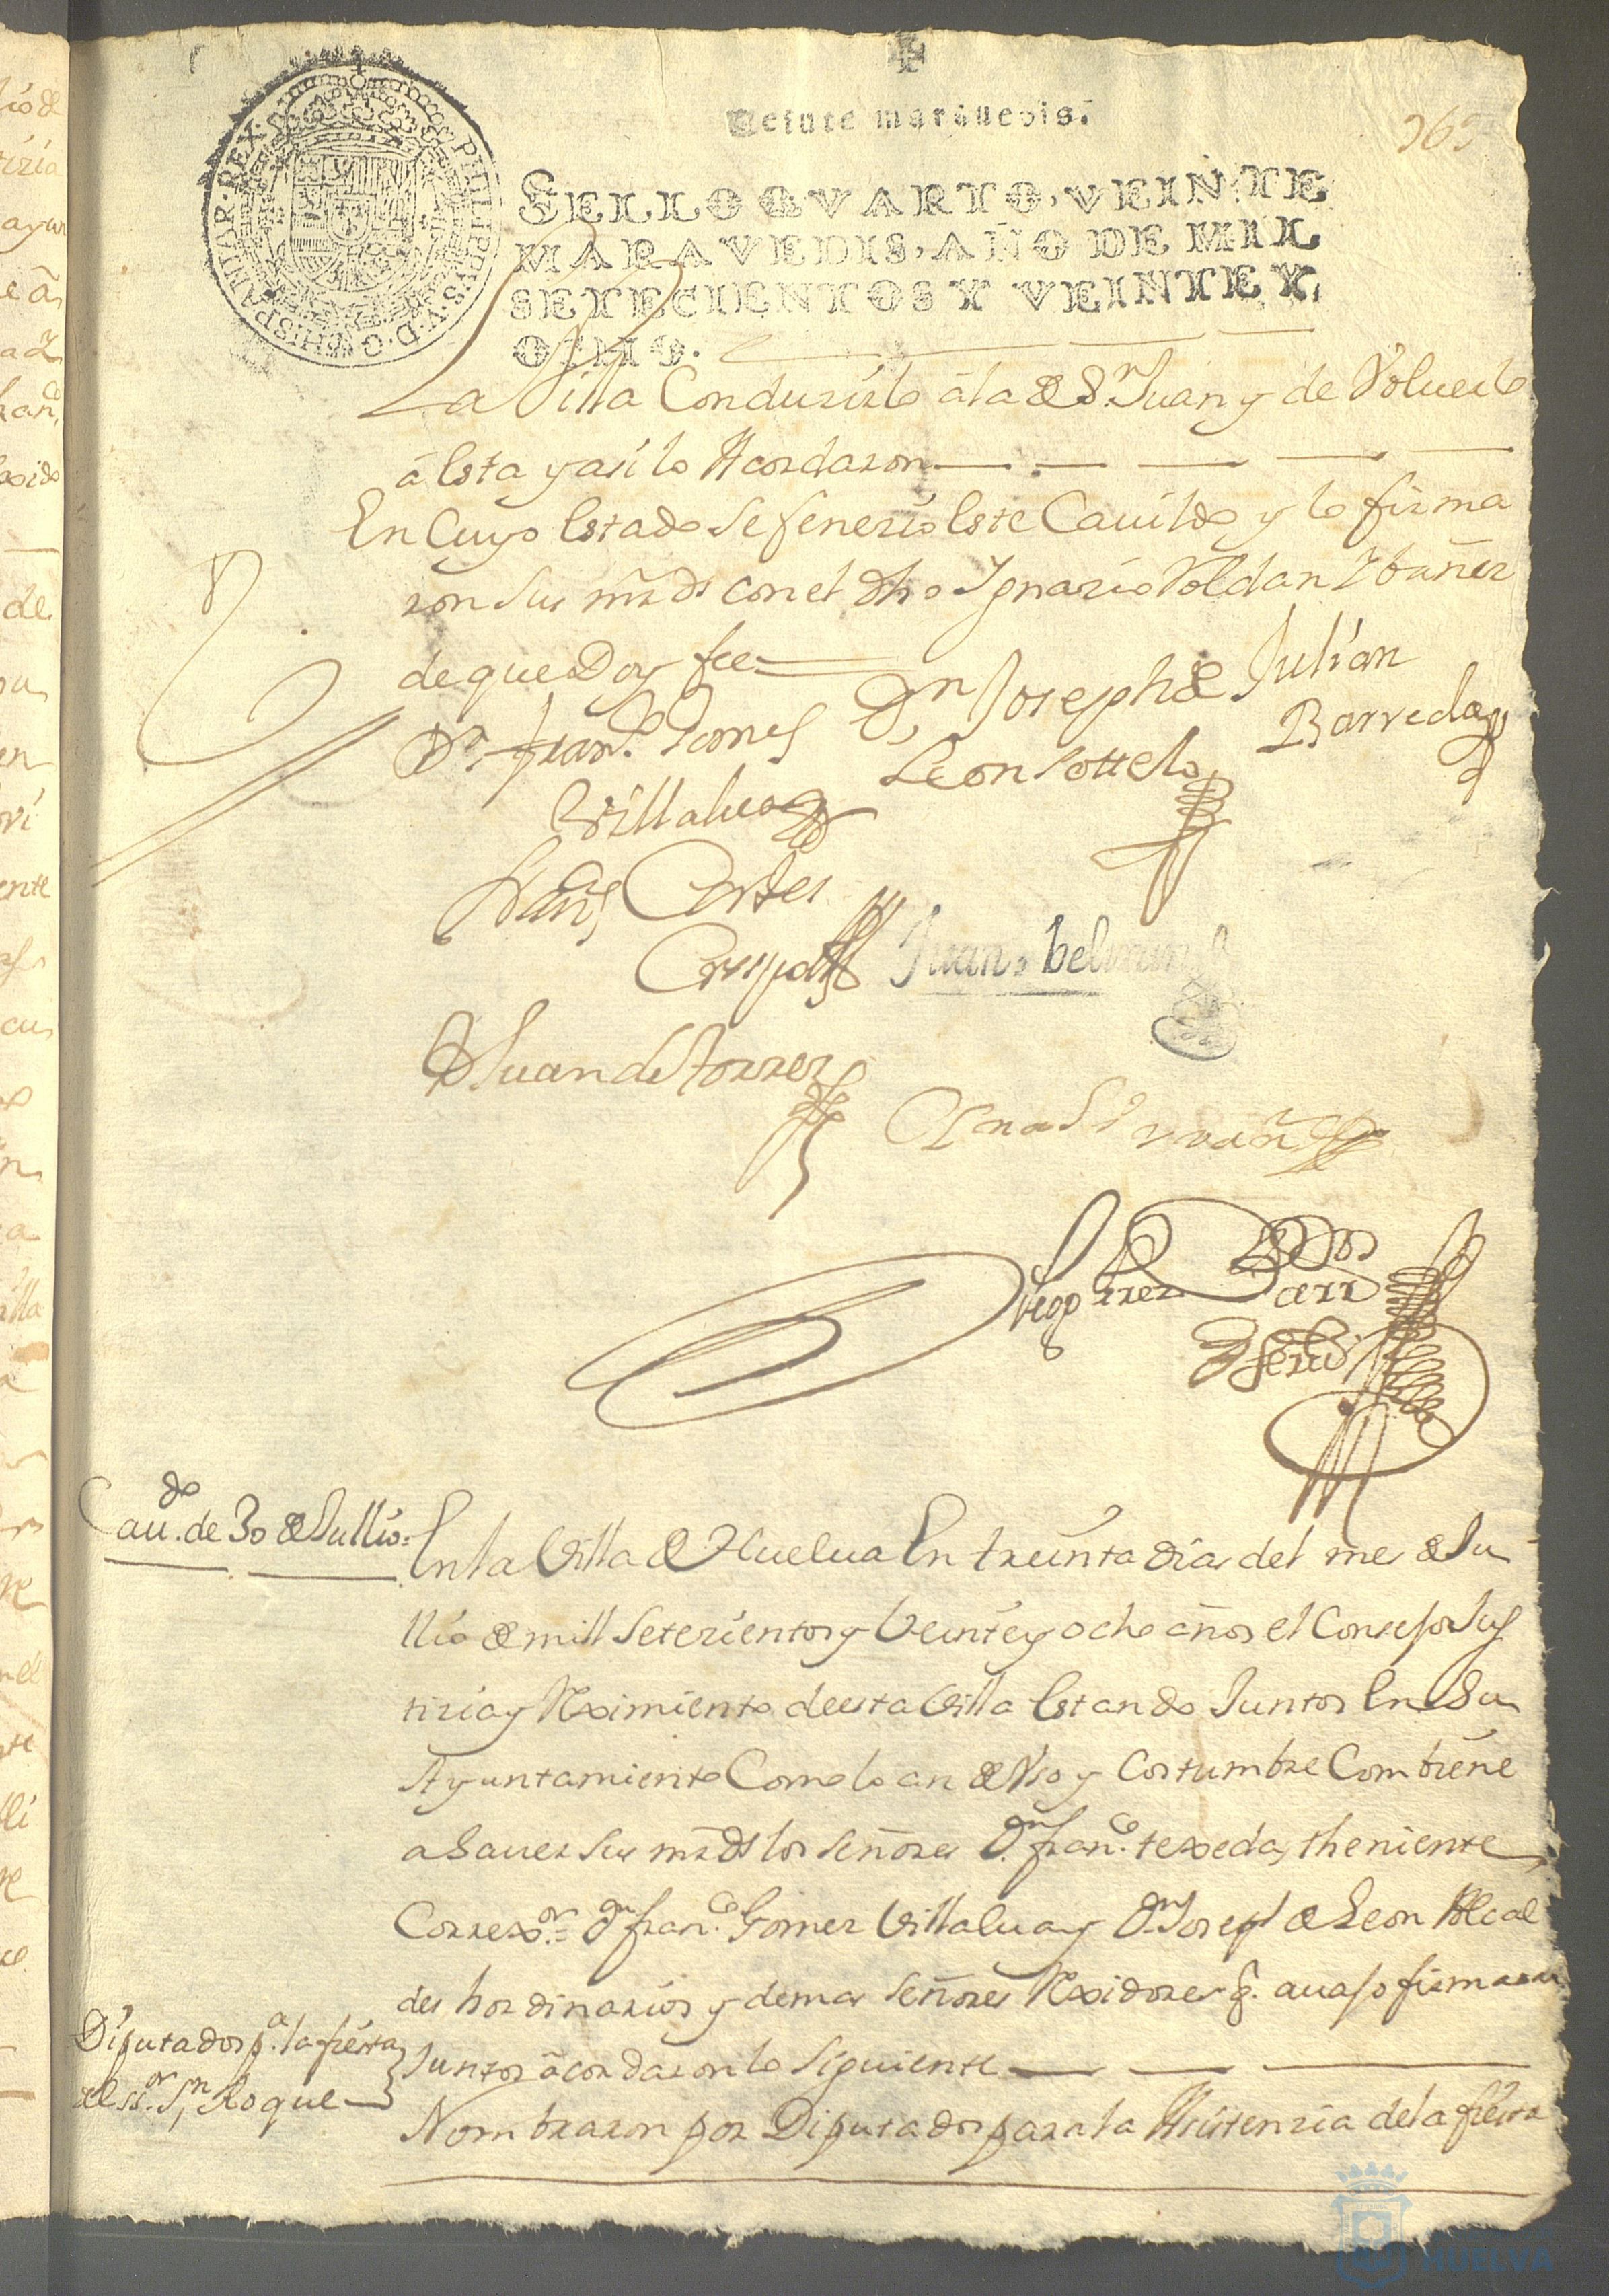 Veinte marauedis.
365
SELLO QVARTO, VEINTE
MARAVEDIS, AÑO DE MIL
SETECIENTOS Y VEINTE Y
OCHO.
PHILIPPUS.V.D.G.HISPANIAR.REX.
La Villa Conduzirlo â la de Sn. Juan y de Voluerlo
â esta y asi lo Acordaron
En Cuyo estado se fenezio este Cauildo y lo firma
ron sus mrds con el dho Ignazio Roldan Ybañez
de que Doy fee
Dn. Franco. Gomes
Villalua
Dn Joseph de
Leon Sottelo
Julian
Barreda
Cortes
Crespo
Juan belmun
D Juan de Torres
Caudo. de 30 de Jullio=
En la Villa de Huelua En treinta dias del mes de Ju
llio de mill setezientos y Veinte y ocho años el Consejo Jus
tizia y Reximiento de esta Villa estando Juntos en Su
Ayuntamiento Como lo an de Vso y Costumbre Combiene
a Sauer sus mrds los señores Dn. franco. texeda, theniente
Correxor.= Dn franco. Gomez Villalua y Dn Joseph de Leon Alcal
des hordinarios y demas señores Rexidores q. auajo firmaran
Juntos âcordaron lo siguiente
Diputados pa. la fiesta
del ssor. Sn Roque
Nombraron por Diputados para la Asistenzia de la fiesta
HUELVA